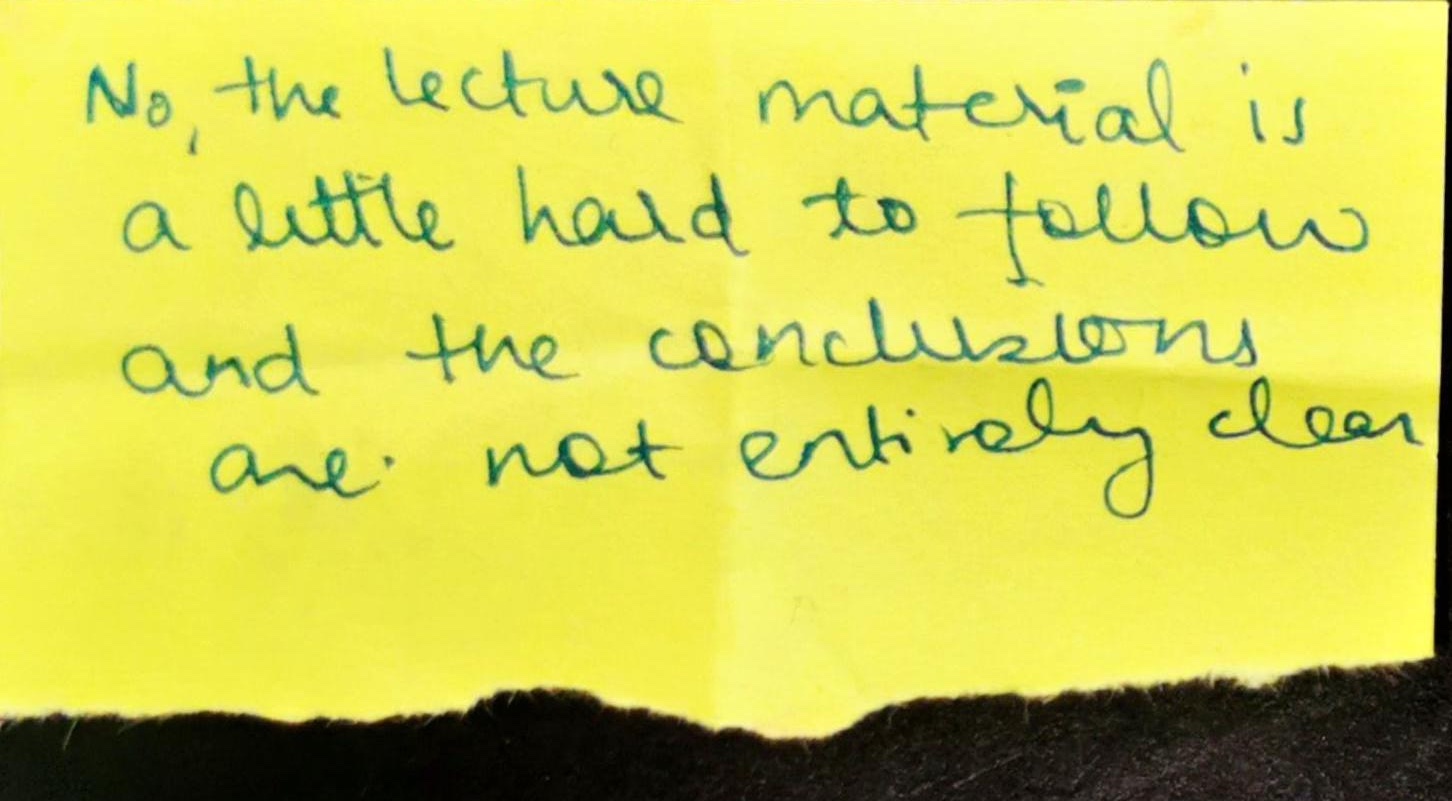 No, the lecture material is
a little hard to follow
and the conclusions
are not entirely clear